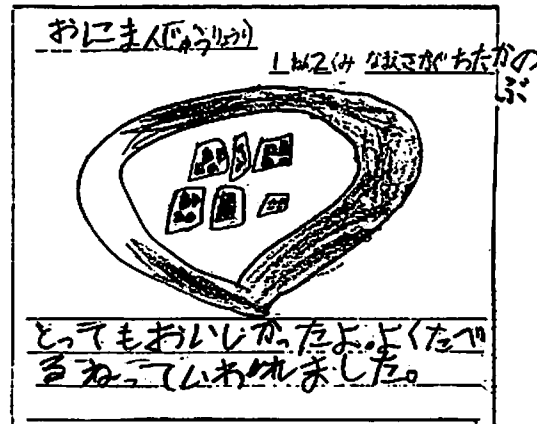 おにまん(じゅうりょうり)
1ねん2くみ なまえさかぐちたかのぶ
とってもおいしかったよ。よくたべ
るねっていわれました。